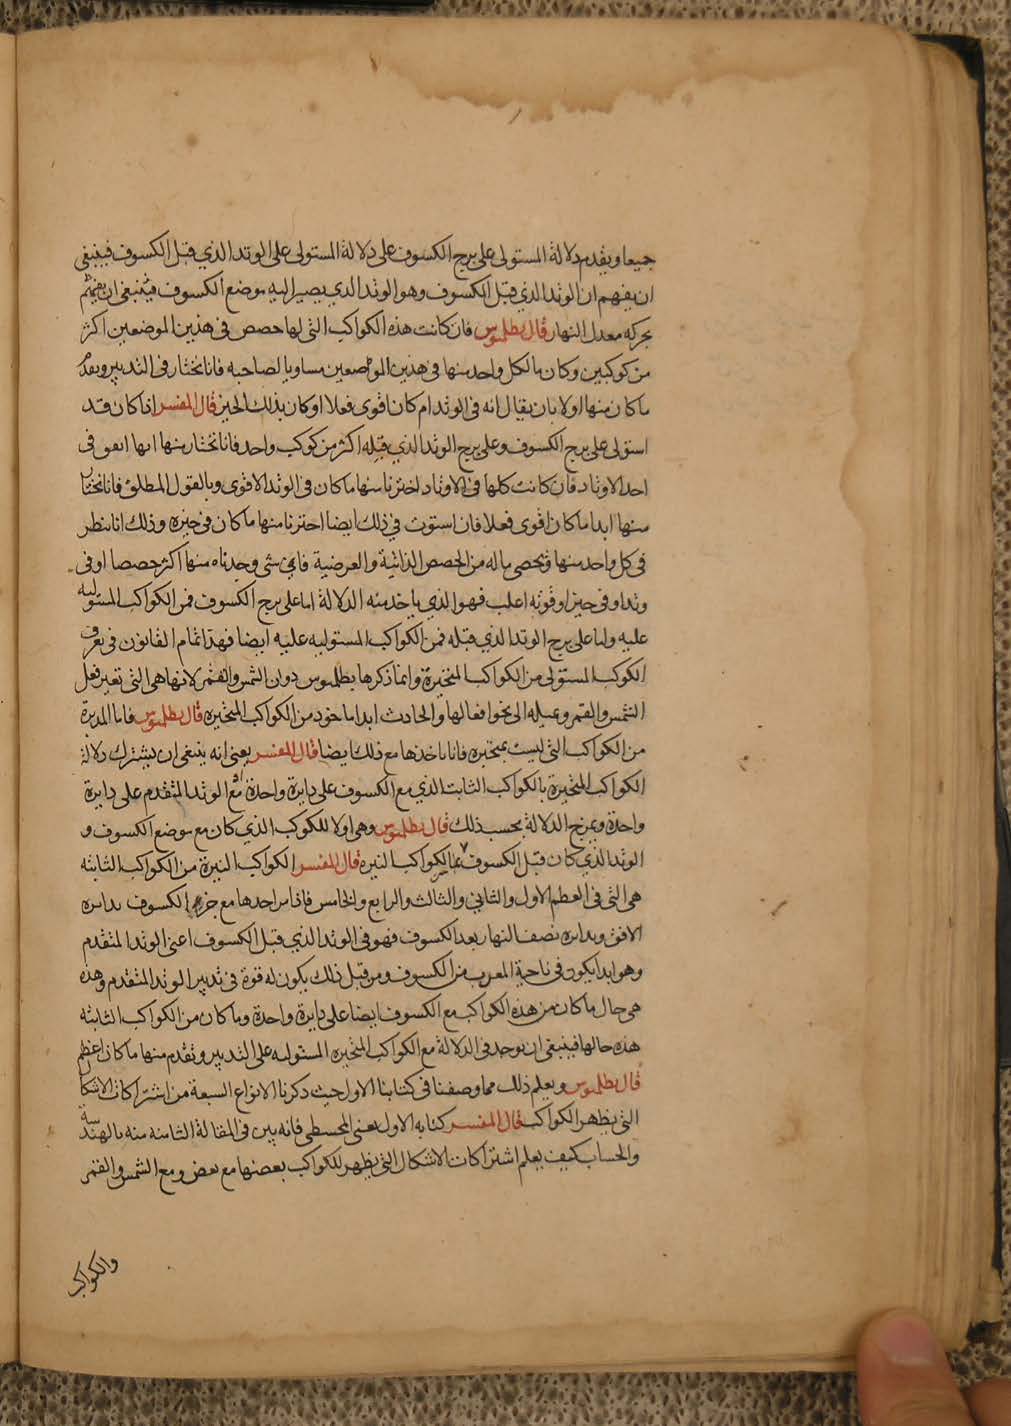 جميعا ويقدم دلالة المستولى على برج الكسوف على دلالة المستولى على الوتد الذي قبل الكسوف فينبغى
ان يفهم ان الوتد الذي قبل الكسوف وهو الوتد الذي يصير اليه موضع الكسوف فينبغى ان يفهم
بحركة معدل النهار قال بطلميوس فان كانت هذه الكواكب التى لها حصص فى هذين الموضعين اكثر
من كوكبين وكان ما لكل واحد منها فى هذين الموضعين مساويا لصاحبه فانا نختار فى التدبير ونقدم
ما كان منها اولا بان يقال انه فى الوتد ام كان اقوى فعلا او كان بذلك الحيز قال المفسر اذا كان قد
استولى على برج الكسوف وعلى برج الوتد الذي قبله اكثر من كوكب واحد فانا نختار منها ايها اتفق فى
احد الاوتاد فان كانت كلها فى الاوتاد اخترنا منها ما كان فى الوتد الاقوى وبالقول المطلق فانا نختار
منها ابدا ما كان اقوى فعلا فان استوت فى ذلك ايضا اخترنا منها ما كان فى حيزه وذلك انا ننظر
فى كل واحد منها ونحصى ما له من الحصص الذاتية والعرضية فاى شى وجدناه منها اكثر حصصا او فى
وتد او فى حيز او قوته اغلب فهو الذي ياخذ منه الدلالة اما على برج الكسوف فمن الكواكب المستوليه
عليه واما على برج الوتد الذي قبله فمن الكواكب المستوليه عليه ايضا فهذا تمام القانون فى تعرف
الكوكب المستولى من الكواكب المتحيرة وانما ذكرها بطلميوس دون الشمس والقمر لانها هى التى تغير فعل
الشمس والقمر وتميله الى نحو افعالها والحادث ابدا ماخوذ من الكواكب المتحيره قال بطلميوس فاما المدبرة
من الكواكب التى ليست بمتحيره فانا ناخذها مع ذلك ايضا قال المفسر يعنى انه ينبغى ان يشترك دلالة
الكواكب المتحيرة بالكواكب الثابت الذي مع الكسوف على دايرة واحدة او مع الوتد المتقدم على دايرة
واحدة ويمزج الدلالة بحسب ذلك قال بطلميوس وهى اولا للكوكب الذي كان مع موضع الكسوف و
الوتد الذي كان قبل الكسوف الكواكب النيره قال المفسر الكواكب النيرة من الكواكب الثابته
هى التى فى العظم الاول والثانى والثالث والرابع والخامس فاذا مر احدها مع جزو الكسوف بدايره
الافق وبدايره نصف النهار بعد الكسوف فهو فى الوتد الذي قبل الكسوف اعنى الوتد المتقدم
وهو ابدا يكون فى ناحية المغرب من الكسوف ومن قبل ذلك يكون له قوة فى تدبير الوتد المتقدم وهذه
هى حال ما كان من هذه الكواكب مع الكسوف ايضا على دايرة واحدة وما كان من الكواكب الثابته
هذه حالها فينبغى ان توجد فى الدلالة مع الكواكب المتحيره المستوليه على التدبير ونقدم منها ما كان اعظم
قال بطلميوس ويعلم ذلك مما وصفنا فى كتابنا الاول حيث ذكرنا الانواع السبعة من اشتراكات الاشكال
التى يظهر الكواكب قال المفسر كتابه الاول يعنى المجسطى فانه بين فى المقالة الثامنه منه بالهندسة
والحساب كيف يعلم اشتراكات الاشكال التى يظهر للكواكب بعضها مع بعض ومع الشمس والقمر
والكواكب